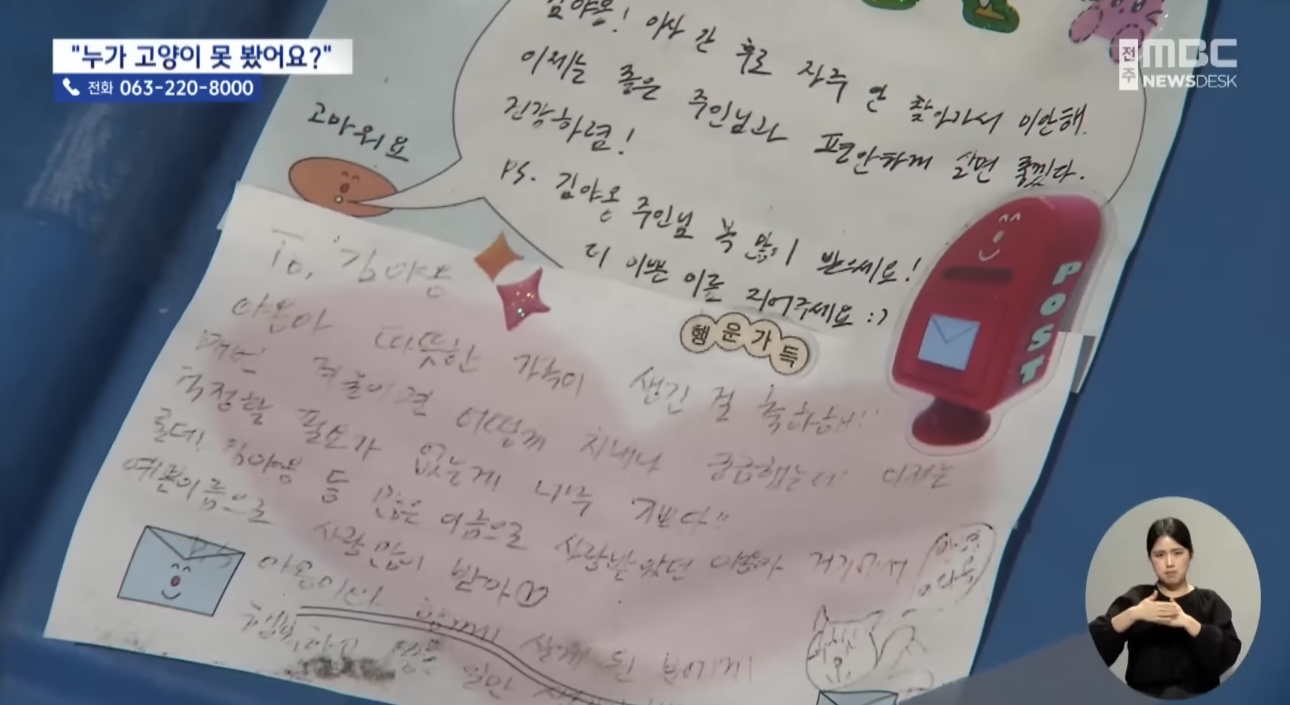 "누가 고양이 못 봤어요?"
전화 063-220-8000
전주 MBC
NEWSDESK
김야옹! 이사 간 후로 자주 안 찾아가서 미안해.
이제는 좋은 주인님과 편안하게 살면 좋겠다.
건강하렴!
PS. 김야옹 주인님 복 많이 받으세요!
더 이쁜 이름 지어주세요 :)
고마워요
POST
행운가득
To, 김야옹
야옹아 따뜻한 가족이 생긴 걸 축하해!!
매번 겨울이면 어떻게 지내나 궁금했는데 이제는
걱정할 필요가 없는게 너무 기쁘다!!
등 많은 이름으로 사랑받았던 야옹아 거기에서
예쁜이름으로 사랑 많이 받아
함께 살게 된